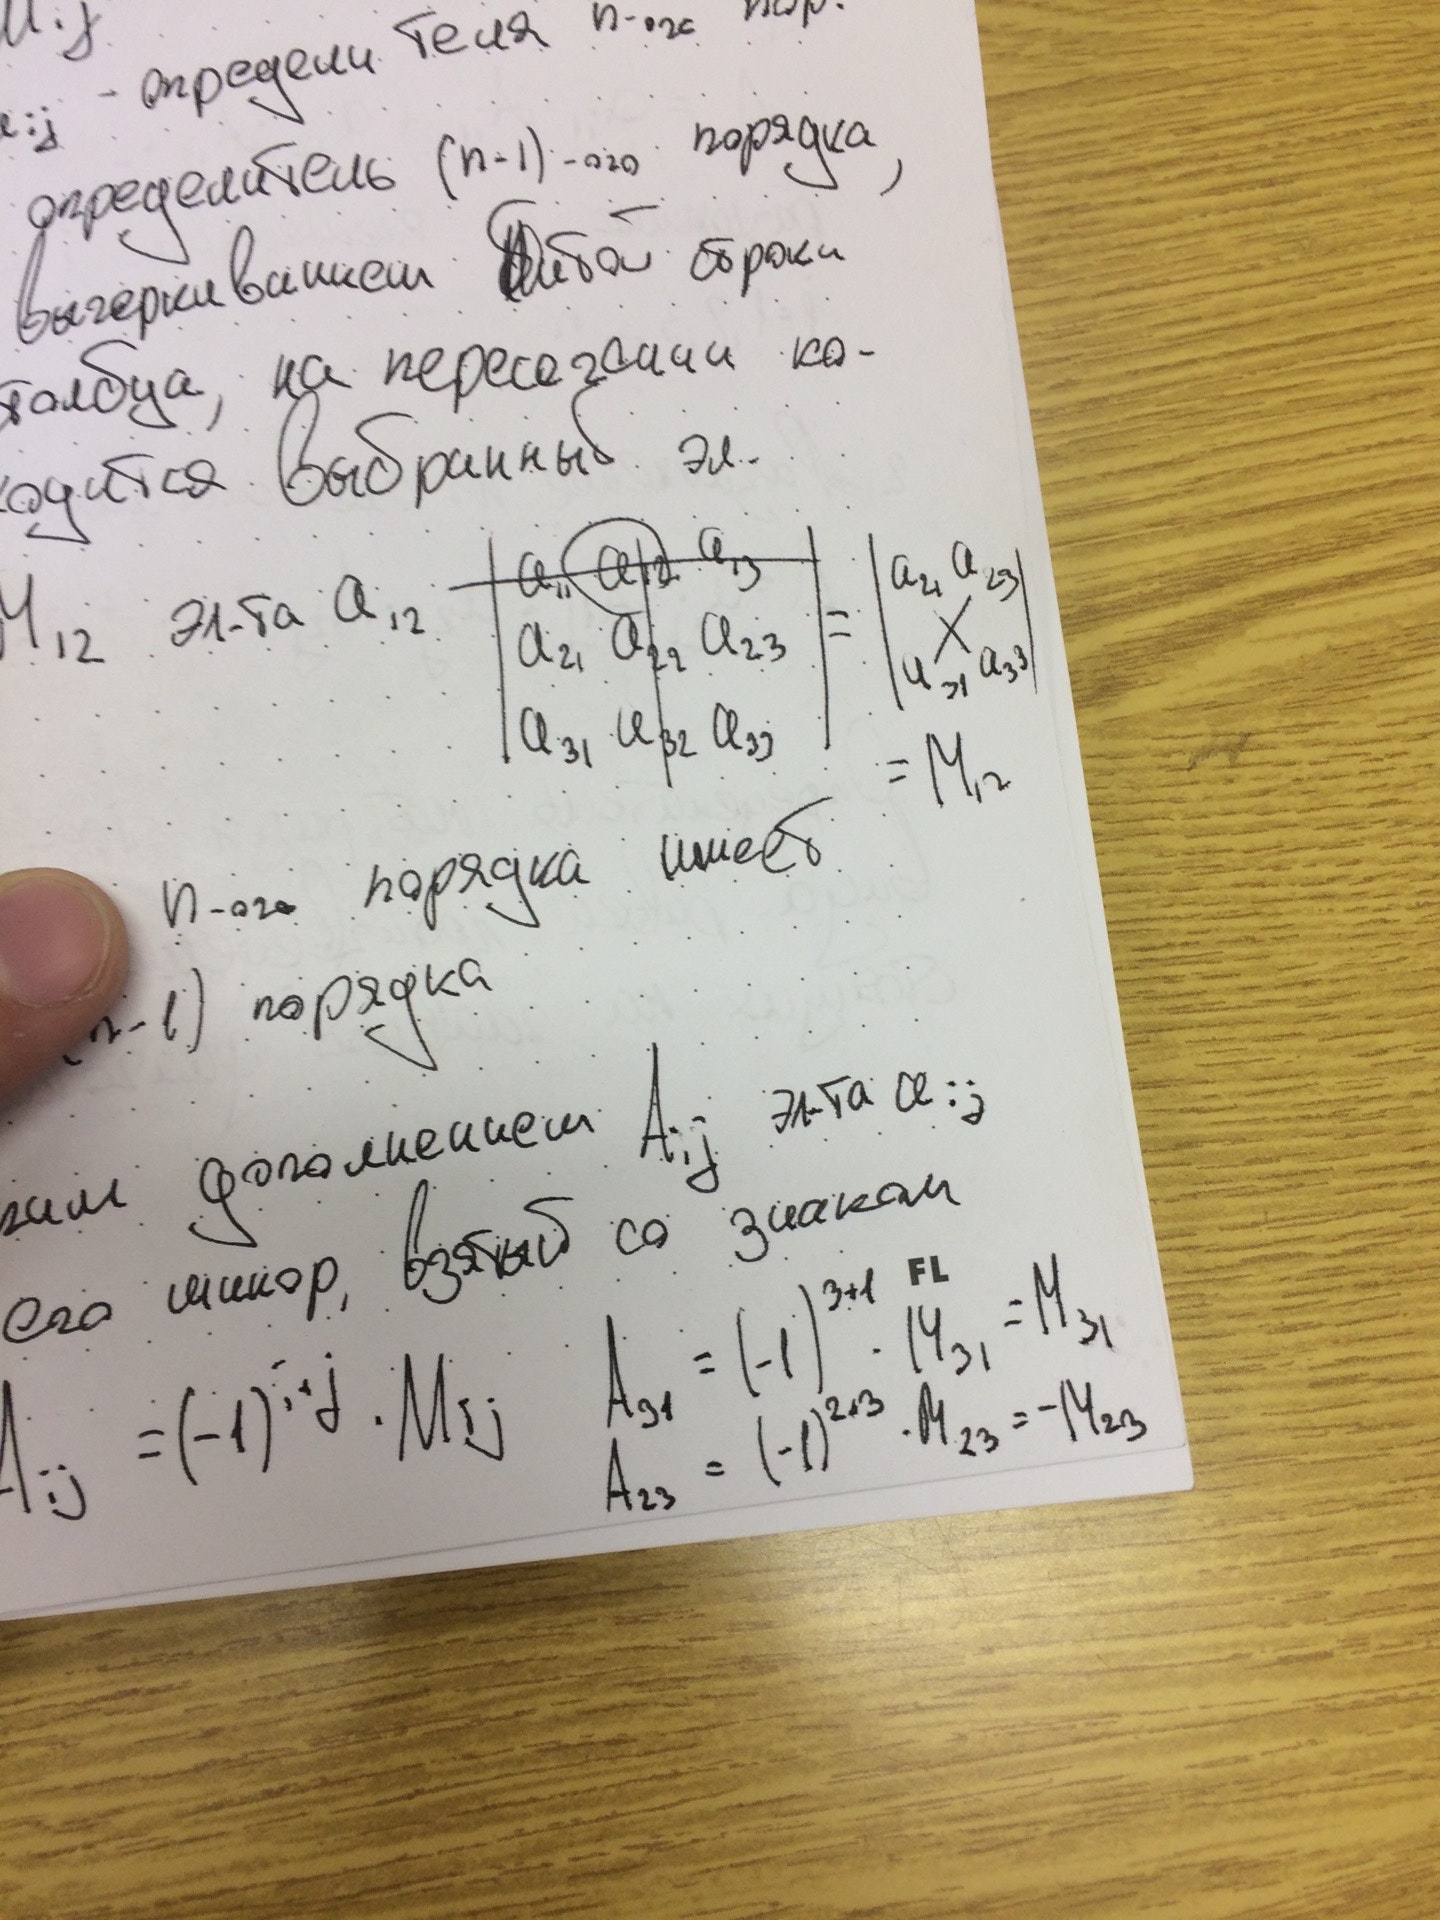 M ij
aij - определителя n-ого пор.
определитель (n-1)-ого порядка,
вычеркиванием йтой строки
толбца, на пересечении ко-
ходится выбранный эл.
M12 эл-та a12 | a11 a12 a13 | = | a21 a23 |
| a21 a22 a23 | | a31 a33 |
| a31 a32 a33 | = M12
n-ого порядка имеет
(n-1) порядка
дополнением Aij эл-та aij
его минор, взятый со знаком
FL
Aij = (-1)^i+j · Mij A31 = (-1)^3+1 · M31 = M31
A23 = (-1)^2+3 · M23 = -M23